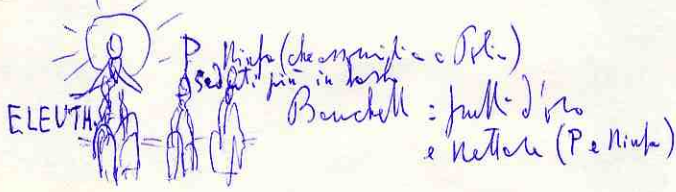 P Ninfa (che assomiglia a Polia)
seduti più in basso
ELEUTH.
Banchett : frutti d'oro
e nettare (P e Ninfa)